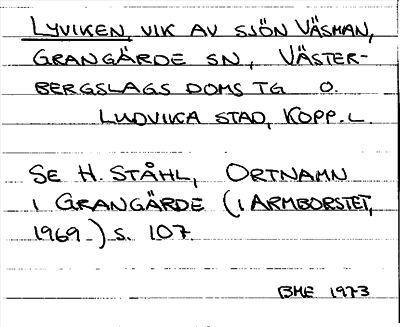 LYVIKEN, VIK AV SJÖN VÄSMAN,
GRANGÄRDE SN, VÄSTER-
BERGSLAGS DOMS TG O.
LUDVIKA STAD, KOPP. L.
SE H. STÅHL, ORTNAMN
I GRANGÄRDE (I ARMBORSTET,
1969.) S. 107.
BHE 1973